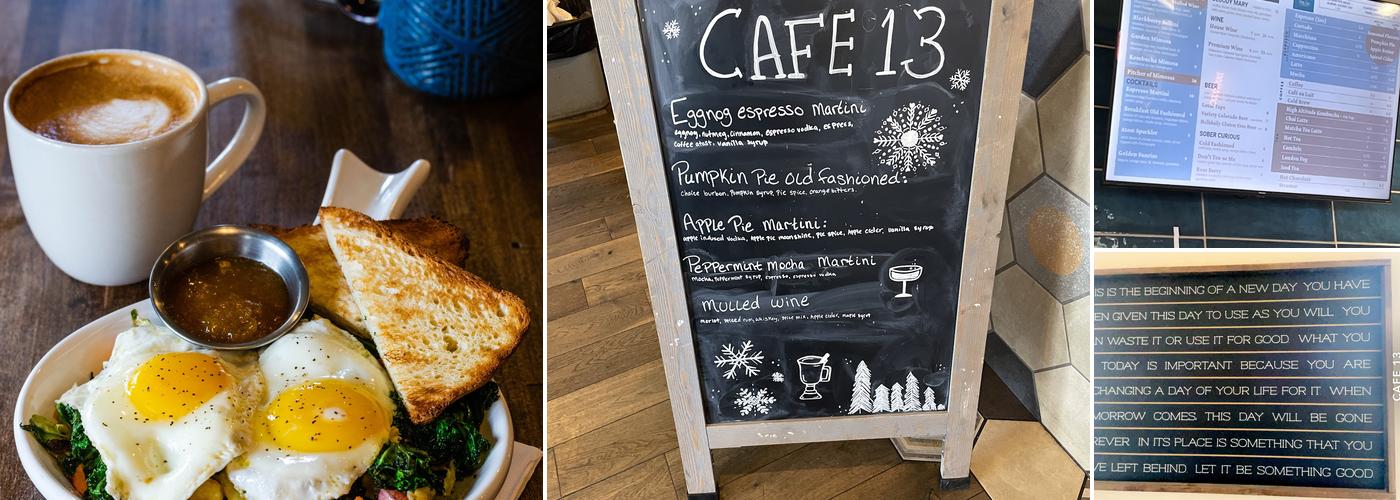 CAFE 13
Eggnog espresso Martini
eggnog, nutmeg, cinnamon, espresso vodka, espress,
coffee
vanilla syrup
Pumpkin Pie Old fashioned:
choice bourbon, Pumpkin syrup, pie spice, orange bitters.
Apple Pie Martini:
apple infused vodka, Apple pie moonshine, pie spice, Apple cider, vanilla syrup
Peppermint mocha Martini
Mocha, Peppermint syrup, espresso, espresso vodka
mulled wine
merlot, spiced rum, whiskey, spice mix, Apple cider, maple syrup
BLOODY MARY
WINE
House Wine
Premium Wine
BEER
Local Taps
Variety Colorado Beer
SOBER CURIOUS
Cold Fashioned
Don't Tea to Me
Blackberry Bellini
Garden Mimosa
Kombucha Mimosa
Pitcher of Mimosas
COCKTAILS
Espresso Martini
Breakfast Old Fashioned
Golden Sunrise
Espresso
Cortado
Macchiato
Cappuccino
Americano
Latte
Mocha
Coffee
Café au Lait
Cold Brew
High Altitude Kombucha
Chai Latte
Matcha Tea Latte
Hot Tea
London Fog
Iced Tea
Hot Chocolate
Steamer
IS THE BEGINNING OF A NEW DAY YOU HAVE
GIVEN THIS DAY TO USE AS YOU WILL YOU
WASTE IT OR USE IT FOR GOOD. WHAT YOU
TODAY IS IMPORTANT BECAUSE YOU ARE
CHANGING A DAY OF YOUR LIFE FOR IT WHEN
MORROW COMES, THIS DAY WILL BE GONE
REVER IN ITS PLACE IS SOMETHING THAT YOU
VE LEFT BEHIND. LET IT BE SOMETHING GOOD
CAFE 13